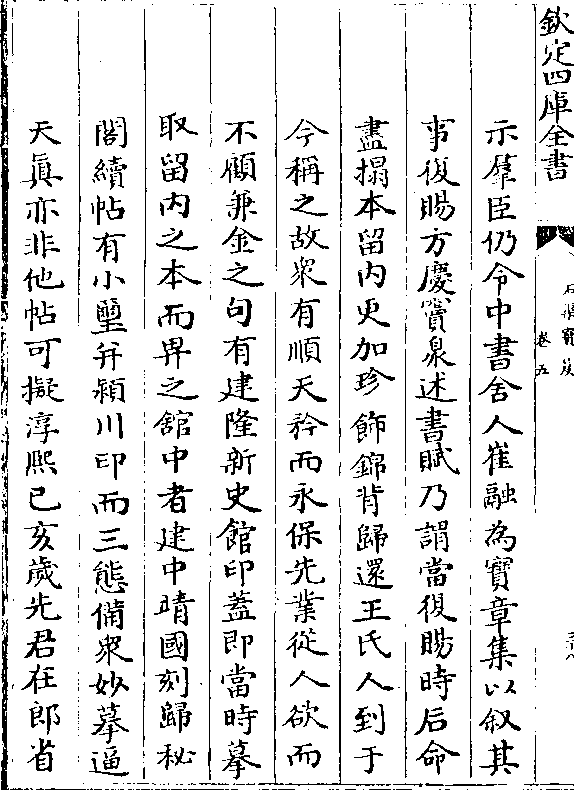 欽定四庫全書
卷五
示羣臣仍令中書舍人崔融為寶章集以叙其
事復賜方慶竇泉述書賦乃謂當復賜時后命
盡搨本留内更加珍飾錦背歸還王氏人到于
今稱之故衆有順天矜而永保先業從人欲而
不顧兼金之句有建隆新史館印蓋即當時摹
取留内之本而畀之舘中者建中靖國刻歸秘
閣續帖有小璽并潁川印而三態備衆妙摹逼
天真亦非他帖可擬淳熈己亥歲先君在郎省